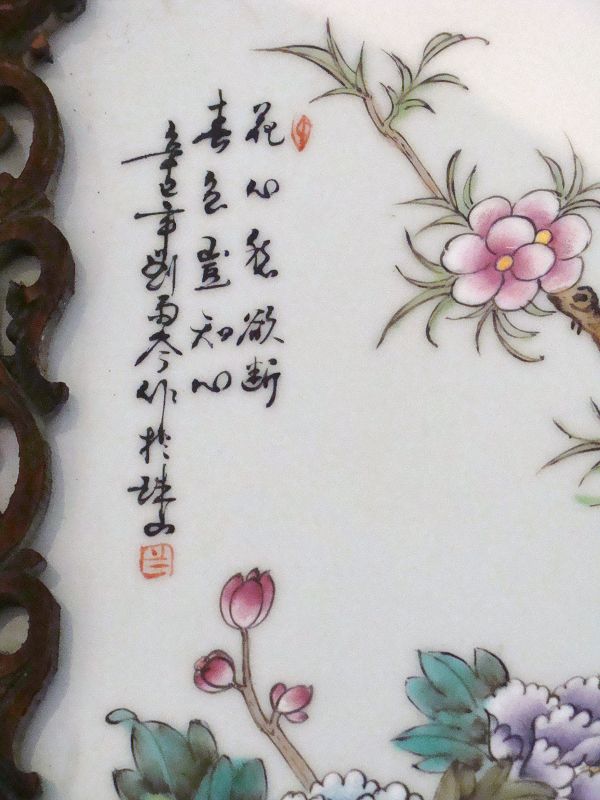 花心愁欲断
春色豈知心
辛巳年劉雨岑作於珠山